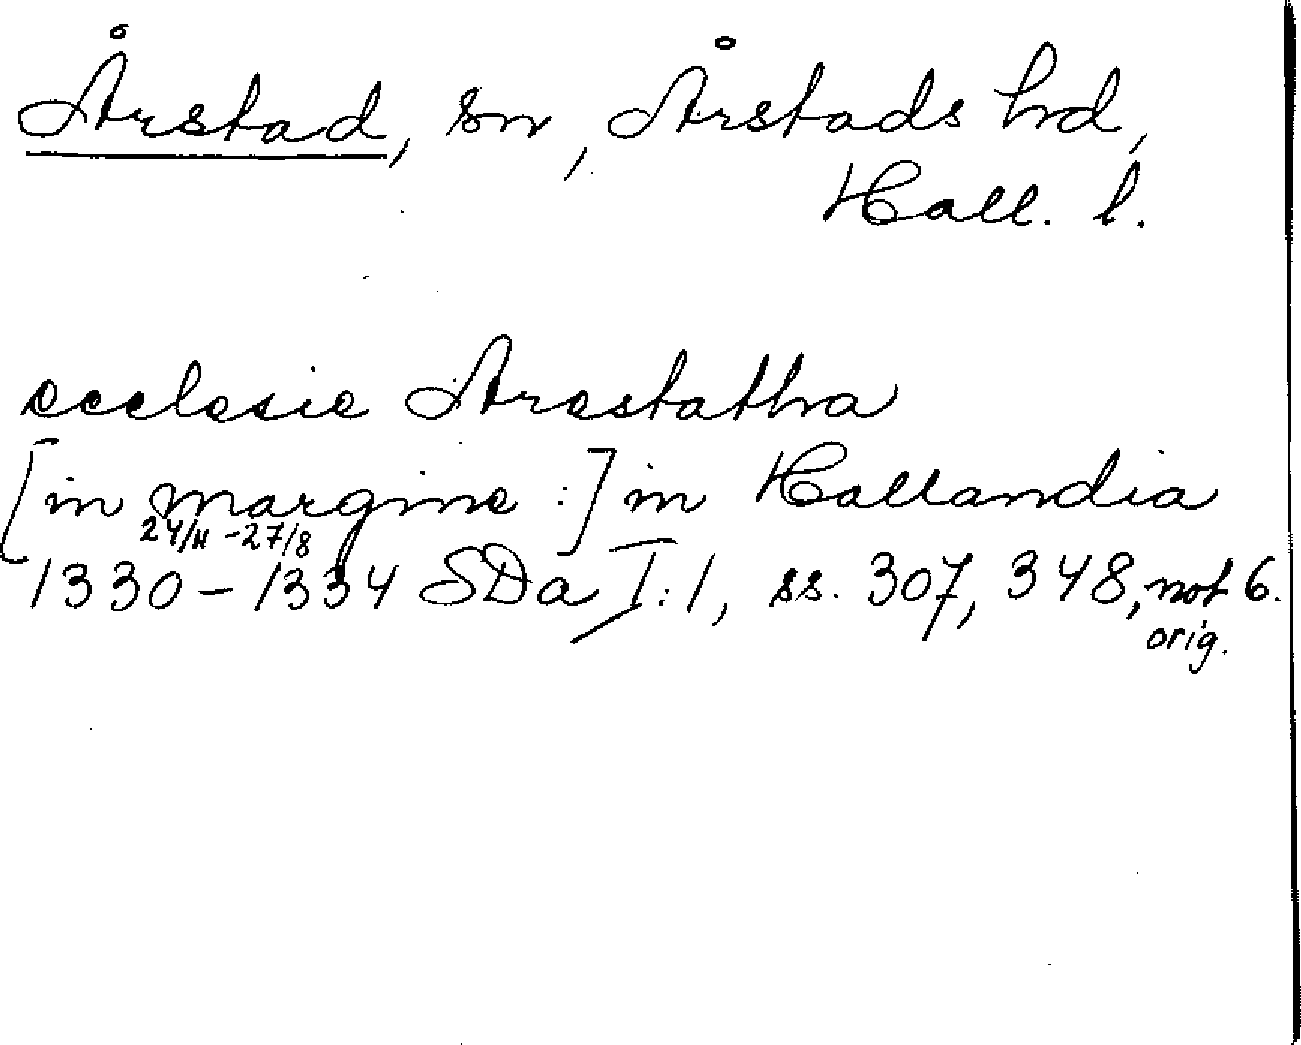 Årstad, sn, Årstads hd,
Hall. l.
ecclesie Arestathra
[in margine :] in Hallandia
24/11 - 27/8
1330 - 1334 SDa I:1, ss. 307, 348, not 6.
orig.